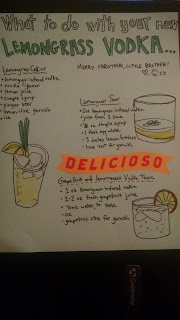 What to do with your new
LEMONGRASS VODKA...
MERRY CHRISTMAS, LITTLE BROTHER!
Lemongrass Collins
• lemongrass infused vodka
• lemon juice
• simple syrup
• ice
Lemongrass Sour
• 2 oz lemongrass infused vodka
• juice from 1 lime
• simple syrup
• 1 fresh egg white
• lime nut for garnish
DELICIOSO
Grapefruit and Lemongrass Vodka Tonic
• 1 oz lemongrass infused vodka
• 1-2 oz fresh grapefruit juice
• Tonic water, to taste
• ice
• grapefruit slice for garnish